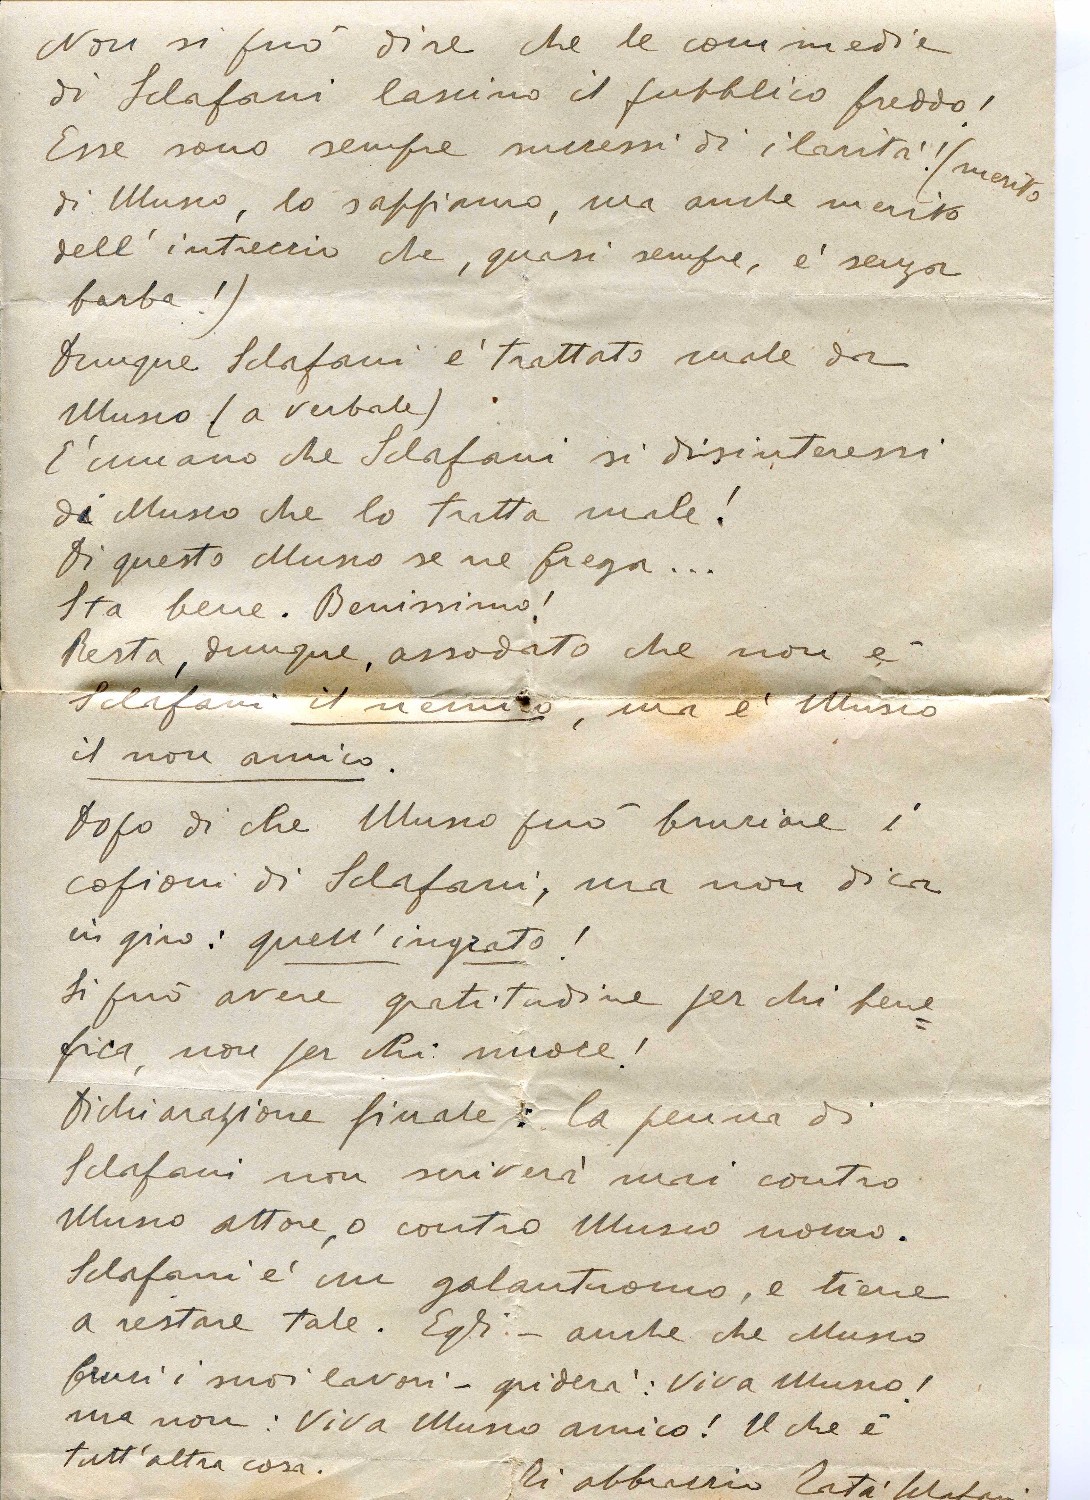 Non si può dire che le commedie
di Sclafani lascino il pubblico freddo!
Esse sono sempre successi di ilarità! (merito
di Musco, lo sappiamo, ma anche merito
dell'intreccio che, quasi sempre, è senza
barba!)
Dunque Sclafani è trattato male da
Musco (a verbale)
È umano che Sclafani si disinteressi
di Musco che lo tratta male!
Di questo Musco se ne frega...
Sta bene. Benissimo!
Resta, dunque, assodato che non è
Sclafani il nemico, ma è Musco
il non amico.
Dopo di che Musco può bruciare i
copioni di Sclafani, ma non dica
in giro: quell'ingrato!
Si può avere gratitudine per chi bene=
fica, non per chi nuoce!
Dichiarazione finale: la penna di
Sclafani non scriverà mai contro
Musco attore, o contro Musco uomo.
Sclafani è un galantuomo, e tiene
a restare tale. Egli - anche che Musco
bruci i suoi lavori - griderà: Viva Musco!
ma non: Viva Musco amico! Il che è
tutt'altra cosa.
Ti abbraccio Tatà Sclafani